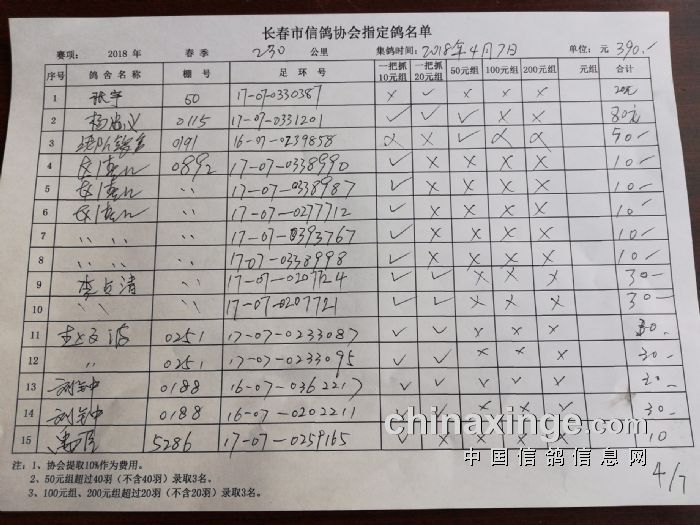 长春市信鸽协会指定鸽名单
赛项: 2018 年 春 季 230 公里 集鸽时间: 2018年4月7日 单位: 元 390.-
序号 鸽舍名称 棚号 足环号 一把抓10元组 一把抓20元组 50元组 100元组 200元组 元组 合计
1 张宇 50 17-07-0330387 × ✓ × × × 20元
2 0115 17-07-0331201 ✓ ✓ ✓ × × 80元
3 0191 16-07-0239858 × × ✓ × × 50-
4 0892 17-07-0338990 ✓ × × × × 10-
5 〃 17-07-0338987 ✓ × × × × 10-
6 〃 17-07-0277712 ✓ × × × × 10-
7 〃 〃 17-07-0393767 ✓ × × × × 10-
8 〃 〃 17-07-0338998 ✓ × × × × 10-
9 李占清 17-07-0207724 ✓ ✓ × × × 30-
10 〃 〃 17-07-0207721 ✓ ✓ × × × 30-
11 0251 17-07-0233087 ✓ ✓ × × × 30-
12 〃 0251 17-07-0233095 ✓ ✓ × × × 30-
13 0188 16-07-0362217 ✓ ✓ × × ×
14 0188 16-07-0202211 × × × 30-
15 5286 17-07-0259165 ✓ × × × × 10
chinaxinge.com
中国信鸽信息网
注: 1、协会提取10%作为费用。
2、50元组超过40羽（不含40羽）录取3名。
3、100元组、200元组超过20羽（不含20羽）录取3名。
4/7